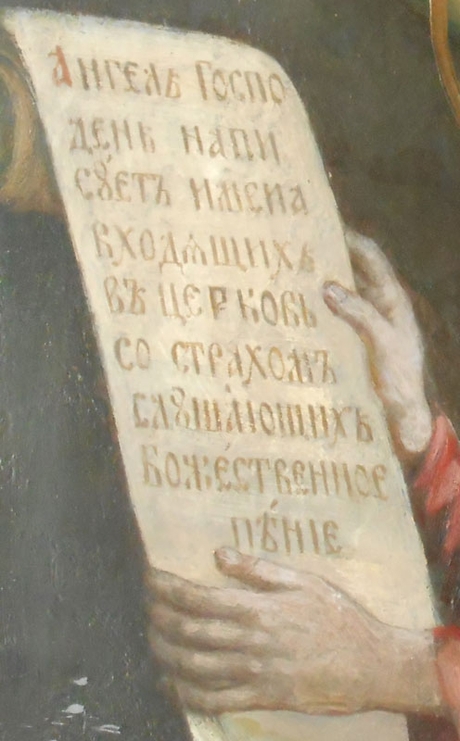 Ангелъ Госпо
день напи
сꙋетъ имена
входѧщихъ
въ церковь
со страхомъ
слꙋшающихъ
Боже́ственное
пѣ́нїе